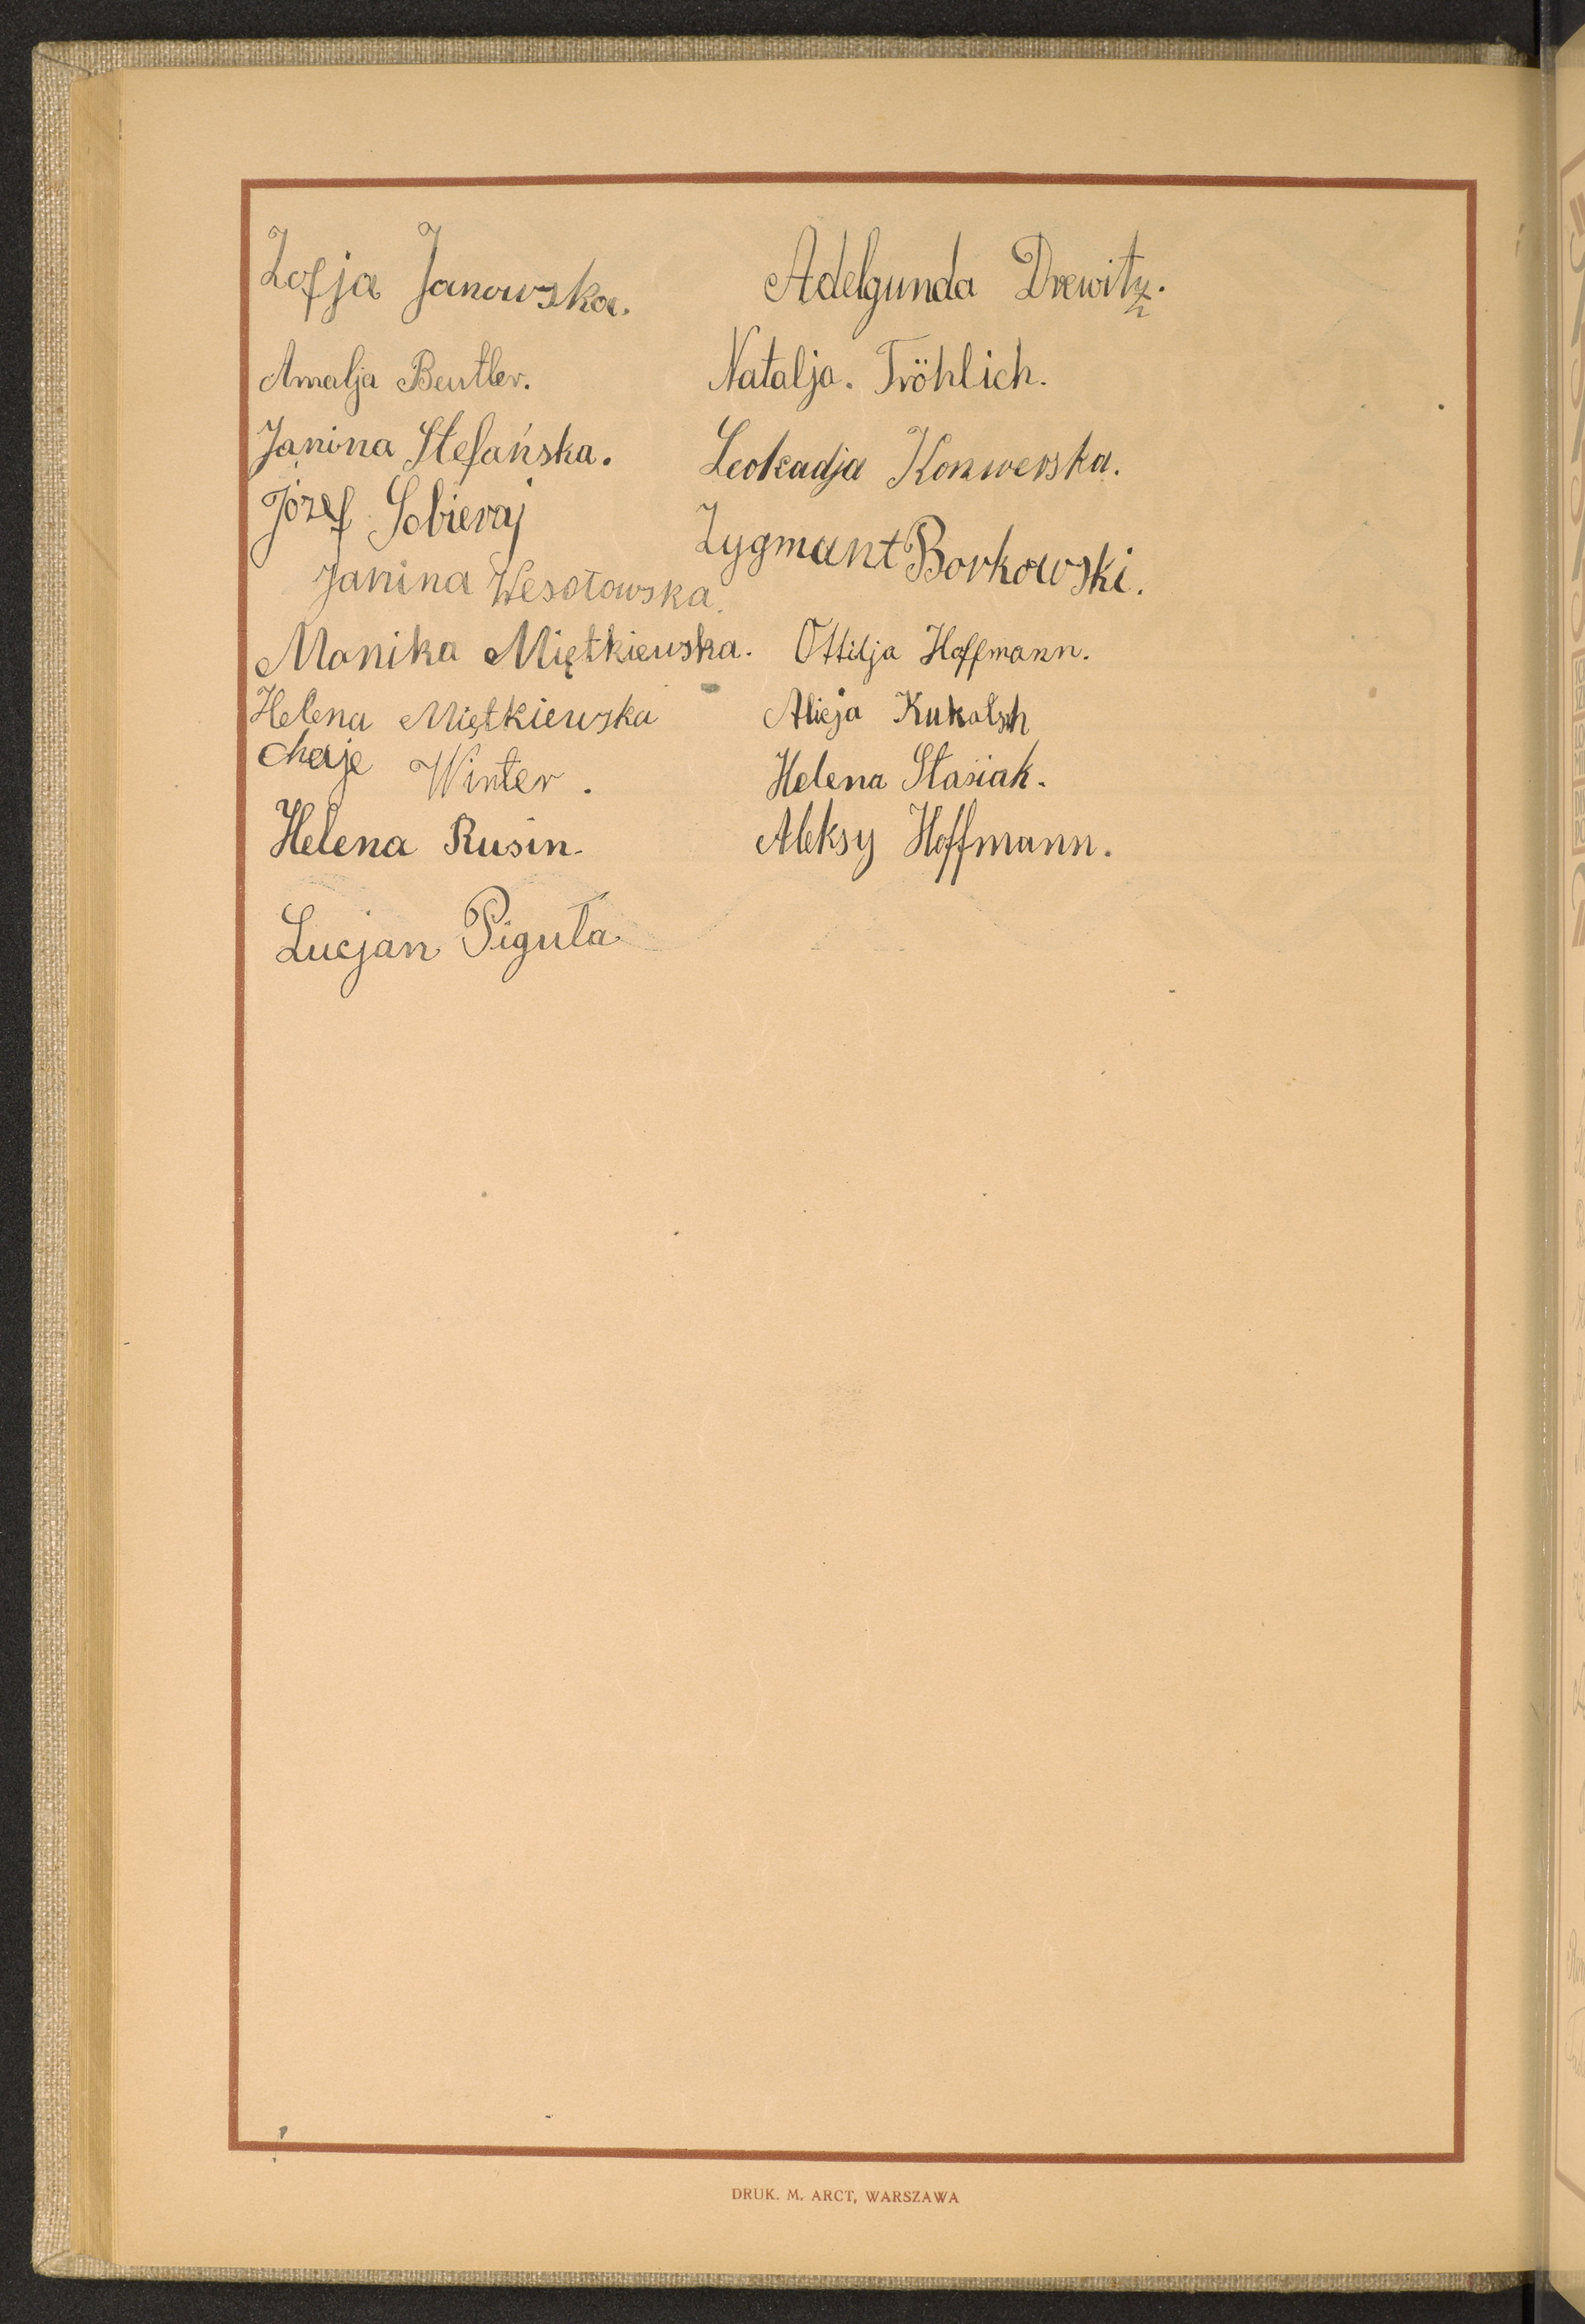 Zofja Janowska.
Amalja Beutler.
Janina Stefańska.
Józef Sobieraj
Janina Wesołowska.
Monika Miętkiewska.
Helena Miętkiewska
Chaje Winter.
Helena Rusin.
Lucjan Piguła
Adelgunda Drewitz.
Natalja. Fröhlich.
Leokadja Konwerska.
Zygmunt Borkowski.
Ottilja Hoffmann.
Alicja
Helena Stasiak.
Aleksy Hoffmann.
DRUK. M. ARCT, WARSZAWA